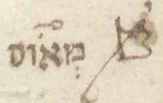 מְאוֹס